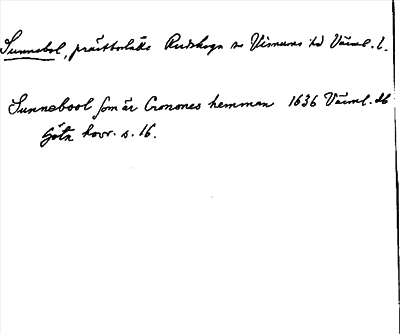 Sunnebol, prästboläke Rudskoga sn Visnums hd Värml. l.
Sunnebool som är Cronones hemman 1636 Värml. db
Göta hovr. s. 16.